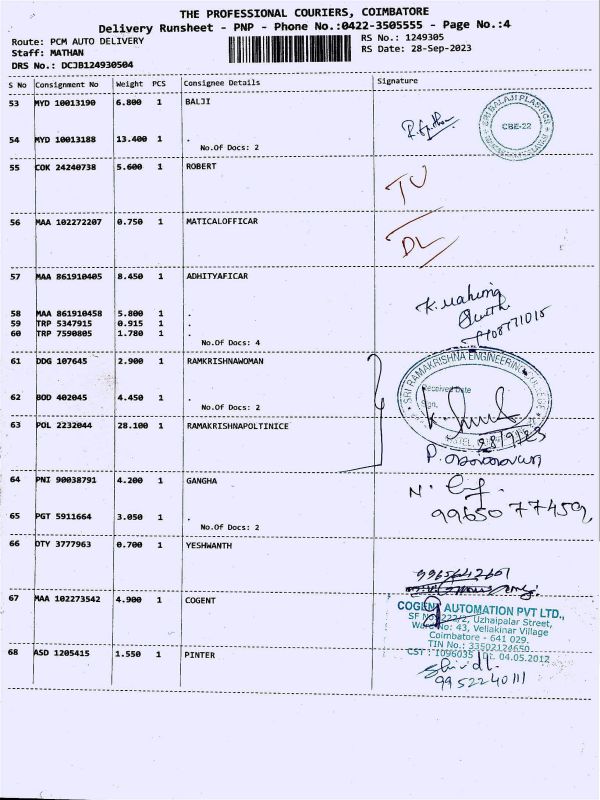 THE PROFESSIONAL COURIERS, COIMBATORE
Delivery Runsheet - PNP - Phone No.:0422-3505555 - Page No.:4
Route: PCM AUTO DELIVERY RS No.: 1249305
Staff: MATHAN RS Date: 28-Sep-2023
DRS No.: DCJB124930504
S No Consignment No Weight PCS Consignee Details Signature
53 MYD 10013190 6.800 1 BALJI
SRI BALAJI PLASTICS
CBE-22
54 MYD 10013188 13.400 1 .
No.Of Docs: 2
55 COK 24240738 5.600 1 ROBERT
TU
56 MAA 102272207 0.750 1 MATICALOFFICAR
DL
57 MAA 861910405 8.450 1 ADHITYAFICAR
58 MAA 861910458 5.800 1 .
59 TRP 5347915 0.915 1 .
60 TRP 7590805 1.780 1 .
No.Of Docs: 4
61 DDG 107645 2.900 1 RAMKRISHNAWOMAN
SRI RAMAKRISHNA ENGINEERING COLLEGE
Received Date
Sign.
62 BOD 402045 4.450 1 .
No.Of Docs: 2
63 POL 2232044 28.100 1 RAMAKRISHNAPOLTINICE
28/9/23
64 PNI 90038791 4.200 1 GANGHA
65 PGT 5911664 3.050 1 .
No.Of Docs: 2
99650 77459
66 DTY 3777963 0.700 1 YESHWANTH
67 MAA 102273542 4.900 1 COGENT
COGENT AUTOMATION PVT LTD.,
SF No: 222/2, Uzhaipalar Street,
Ward No: 43, Vellakinar Village
Coimbatore - 641 029.
TIN No.: 33502124650
CST : 1096035 Dt. 04.05.2012
68 ASD 1205415 1.550 1 PINTER
9952240111